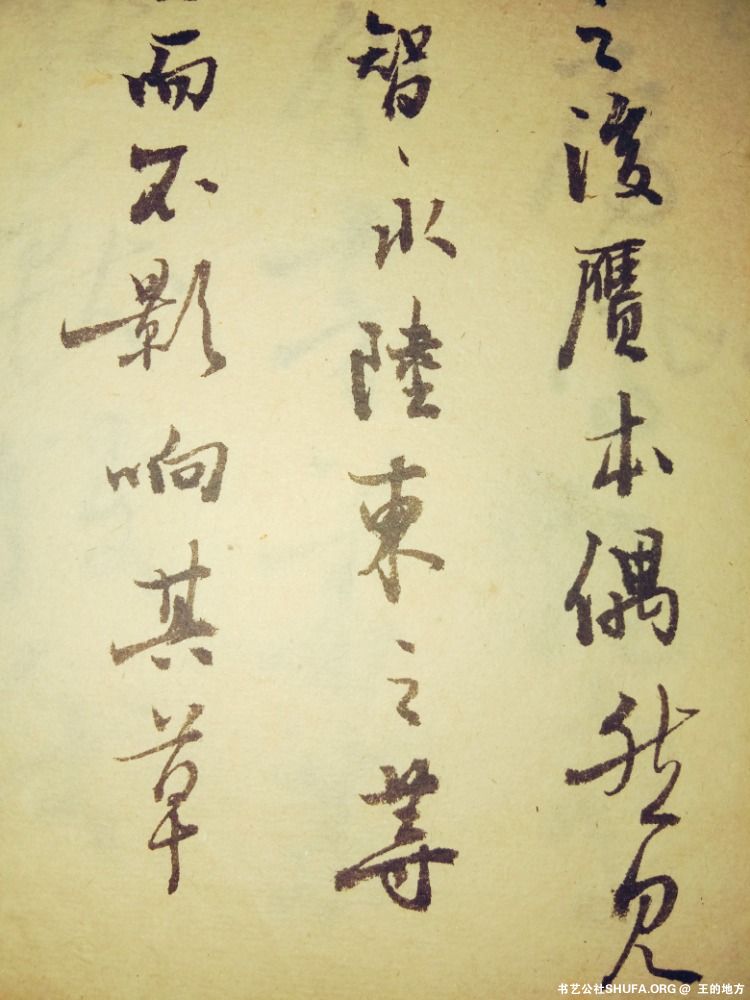 之後贋本偶然見
智永陸東之等
而不影响其草
书艺公社SHUFA.ORG @ 王的地方